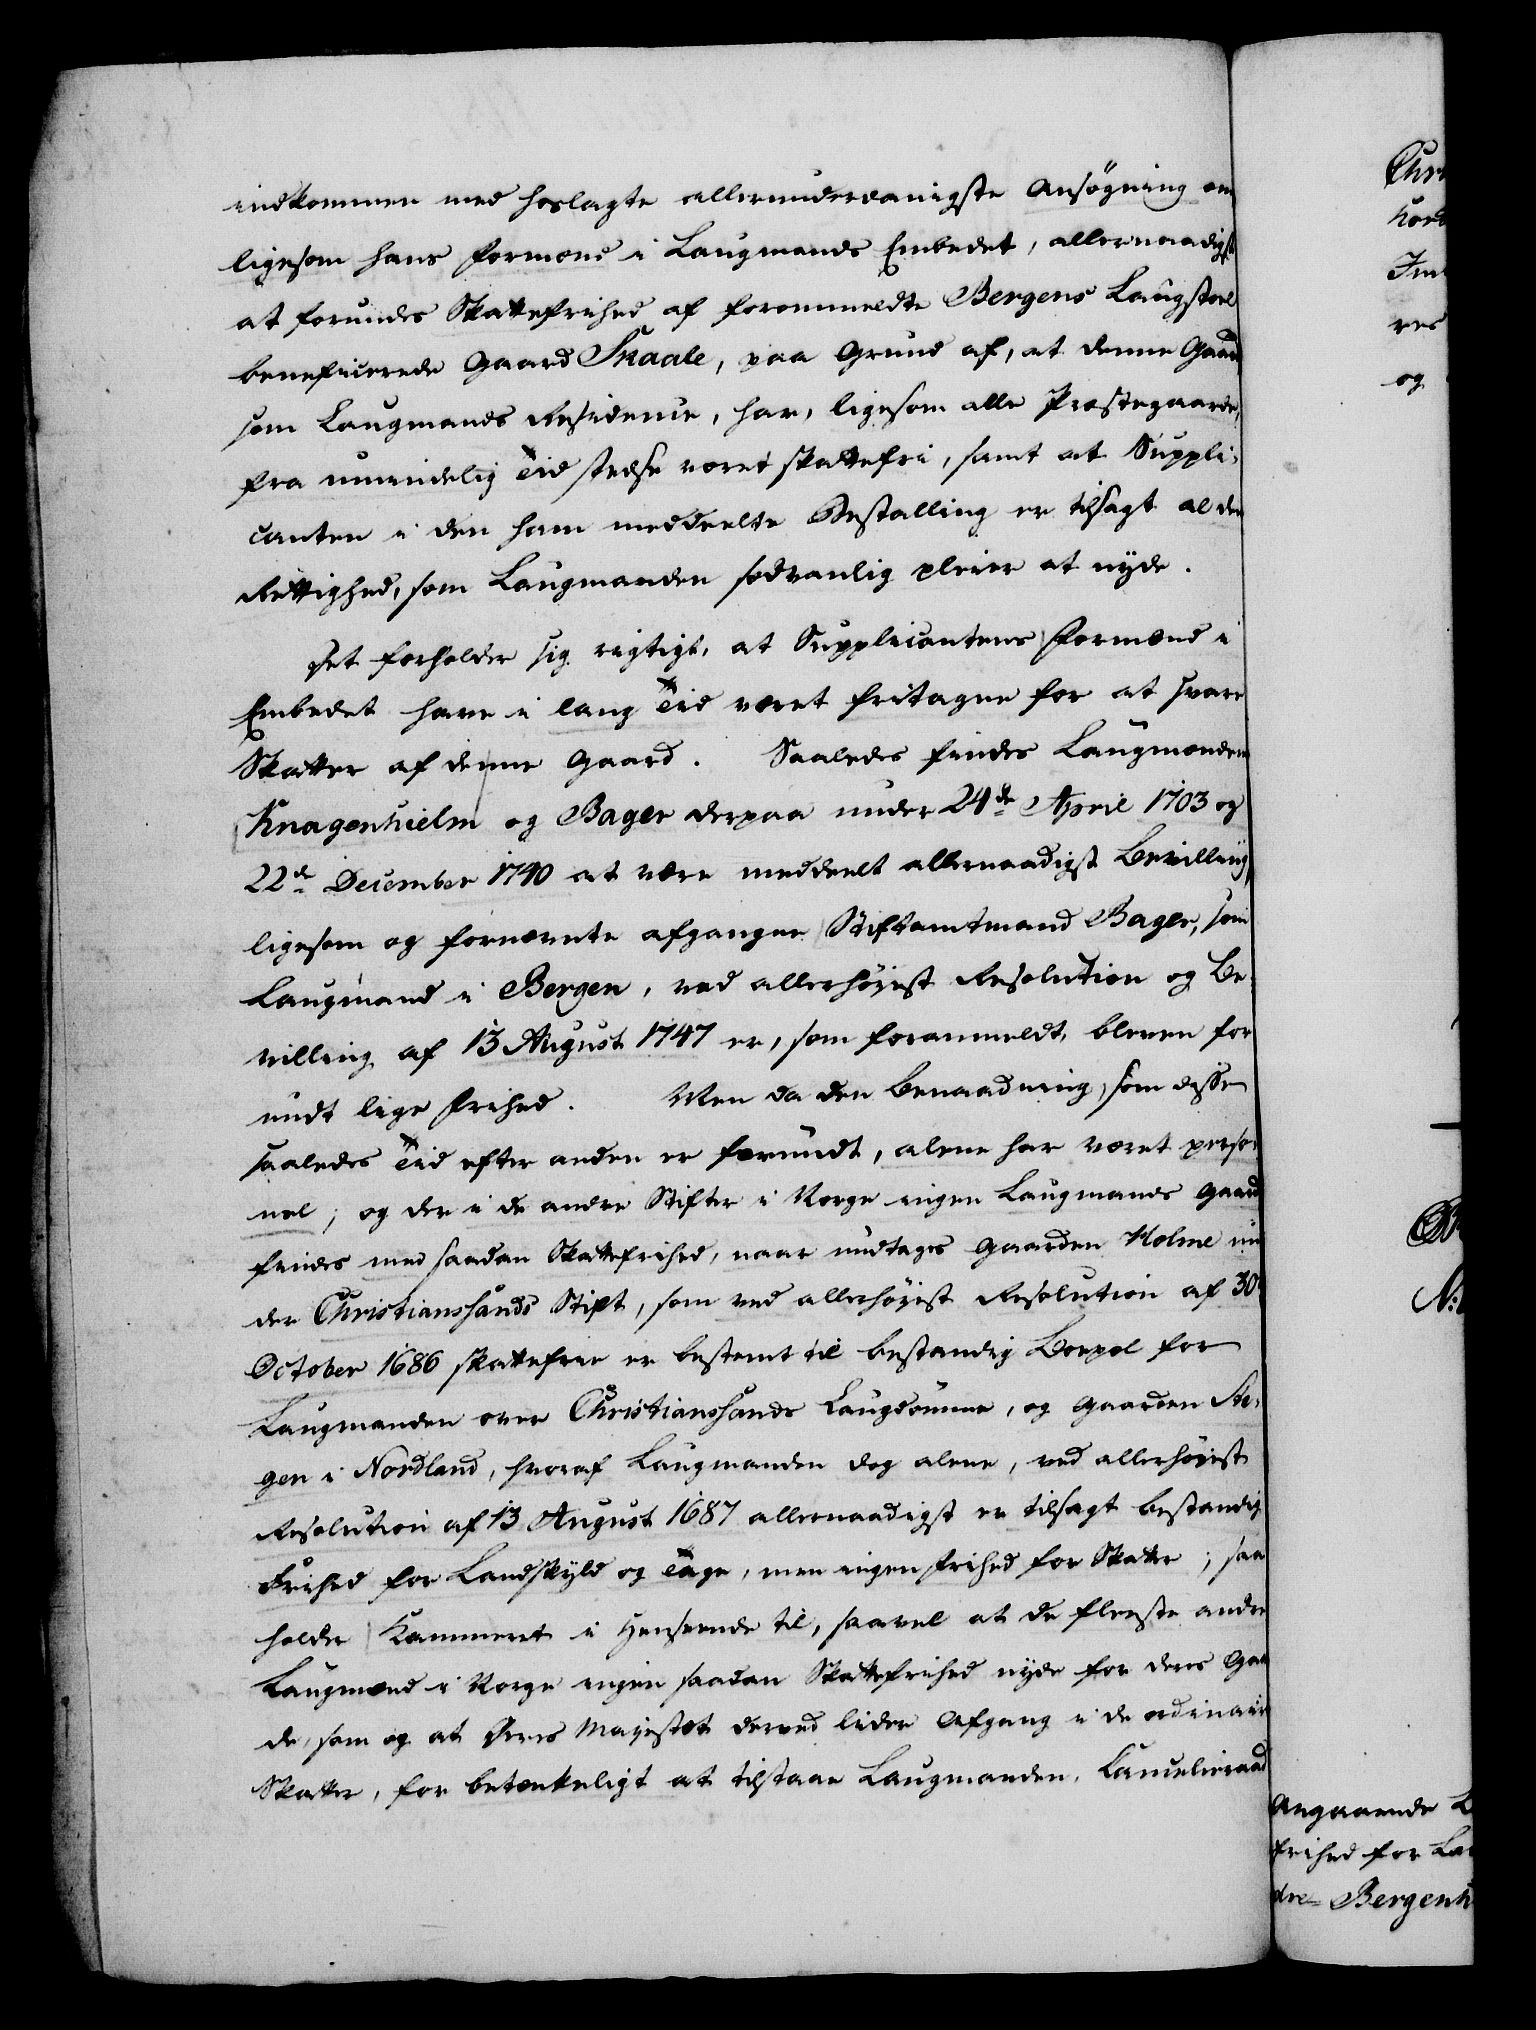 indkommen med hoslagte allerunderdanigste Ansøgning om
ligesom hans Formænd i Laugmands Embedet, allernaadigst
at forundes Skattefrihed af forommeldte Bergens Laugstoel
beneficerede Gaard Skaale, paa Grund af, at denne Gaard
som Laugmands Residence, har, ligesom alle Præstegaarde,
fra umindelig Tid stedse været skattefri, samt at Suppli-
canten i den ham meddeelte Bestalling er tilsagt al den
Rettighed, som Laugmanden sædvanlig pleier at nyde.
Det forholder sig rigtigt, at Supplicantens Formænd i
Embedet have i lang Tid været fritagne for at svare
Skatter af denne Gaard. Saaledes findes Laugmændene
Knagenhielm og Bager derpaa under 24de April 1703 og
22de December 1740 at være meddeelt allernaadigst Bevilling,
ligesom og fornævnte afgangne Stiftamtmand Bager, som
Laugmand i Bergen, ved allerhøyest Resolution og Be-
villing af 13 August 1747 er, som forommeldt, bleven for
undt lige Frihed. Men da den Benaadning, som disse
saaledes Tid efter anden er forundt, alene har været perso-
nel; og der i de andre Stifter i Norge ingen Laugmands Gaard
findes med saadan Skattefrihed, naar undtages Gaarden Holme un
der Christianssands Stift, som ved allerhøyest Resolution af 30
October 1686 skattefrie er bestemt til bestandig Boepæl for
Laugmanden over Christianssands Laugdømme, og Gaarden Ste-
gen i Nordland, hvoraf Laugmanden dog alene, ved allerhøyest
Resolution af 13 August 1687 allernaadigst er tilsagt bestandig
Frihed for Landskyld og Tage, men ingen Frihed for Skatter; saa
holder Kammeret i Henseende til, saavel at de fleeste andre
Laugmænd i Norge ingen saadan Skattefrihed nyde for deres Gaar
de, som og at Deres Majestæt derved lider Afgang i de ordinaire
Skatter, for betænkeligt at tilstaae Laugmanden, Cancelieraad
Chri
Nord
res
og
Angaaende
Frihed for La
dre Bergenh